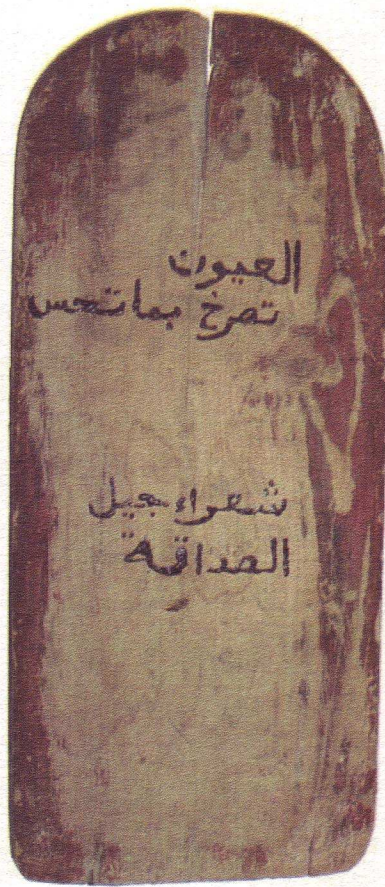 العيون
تصرخ بما تحس
شعراء جيل
الصداقة